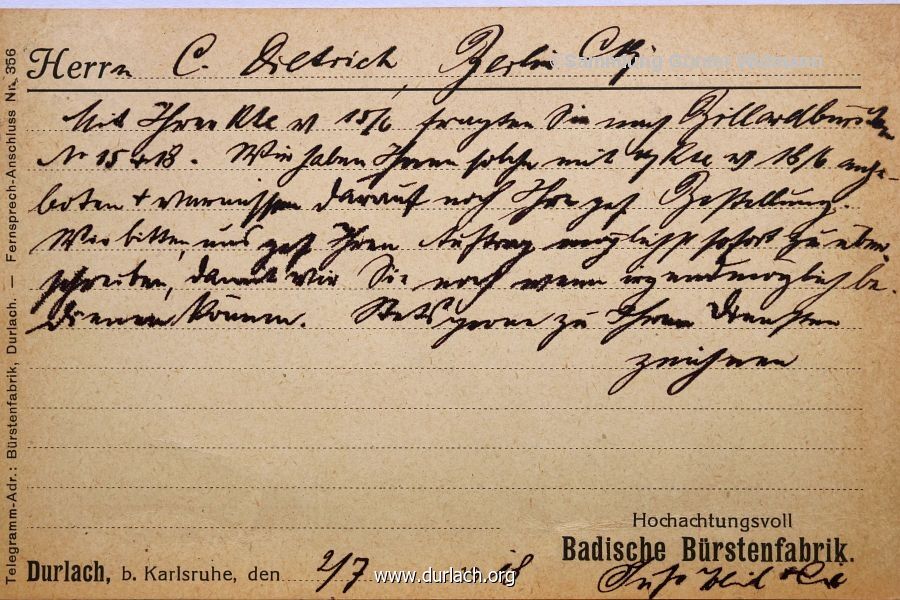 Herrn C. Dietrich, Berlin
© Sammlung Günter Widmann
Mit Ihrer Kte v 15/6 fragten Sie nach Billardbürsten
No 15 + 18. Wir haben Ihnen solche mit Kte v 18/6 ange-
boten + vermissen darauf noch Ihre gef Bestellung.
Wir bitten, uns gefl Ihren Auftrag möglichst sofort zu über-
schreiben, damit wir Sie noch wenn irgendmöglich be-
dienen können. Stets gerne zu Ihren Diensten
zeichnen
Hochachtungsvoll
Badische Bürstenfabrik.
Durlach, b. Karlsruhe, den 2/7 18
www.durlach.org
Telegramm-Adr.: Bürstenfabrik, Durlach. — Fernsprech-Anschluss Nr. 356